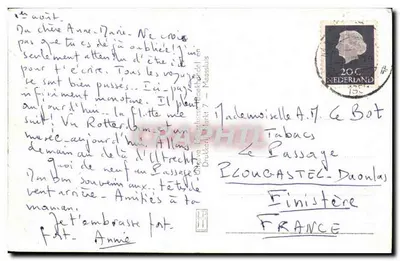 1er août.
Ma chère Anne-Marie. Ne crois
pas que tu es déjà oubliée! J'ai
seulement attendu d'être ici
pour t'écrire. Tous les voyages
se sont bien passés. Ici, pays
infiniment monotone. Il pleut
aujourd'hui. La flotte me
suit! Vu Rotterdam
aujourd'hui. Allons
demain au delà d'Utrecht.
Quoi de neuf au Passage?
Mon bon souvenir aux
vent arrière. Amitiés à ta
maman.
Je t'embrasse
Annie
20C
NEDERLAND
Mademoiselle A.M. Le Bot
Tabacs
Le Passage
PLOUGASTEL-Daoulas
Finistère
FRANCE